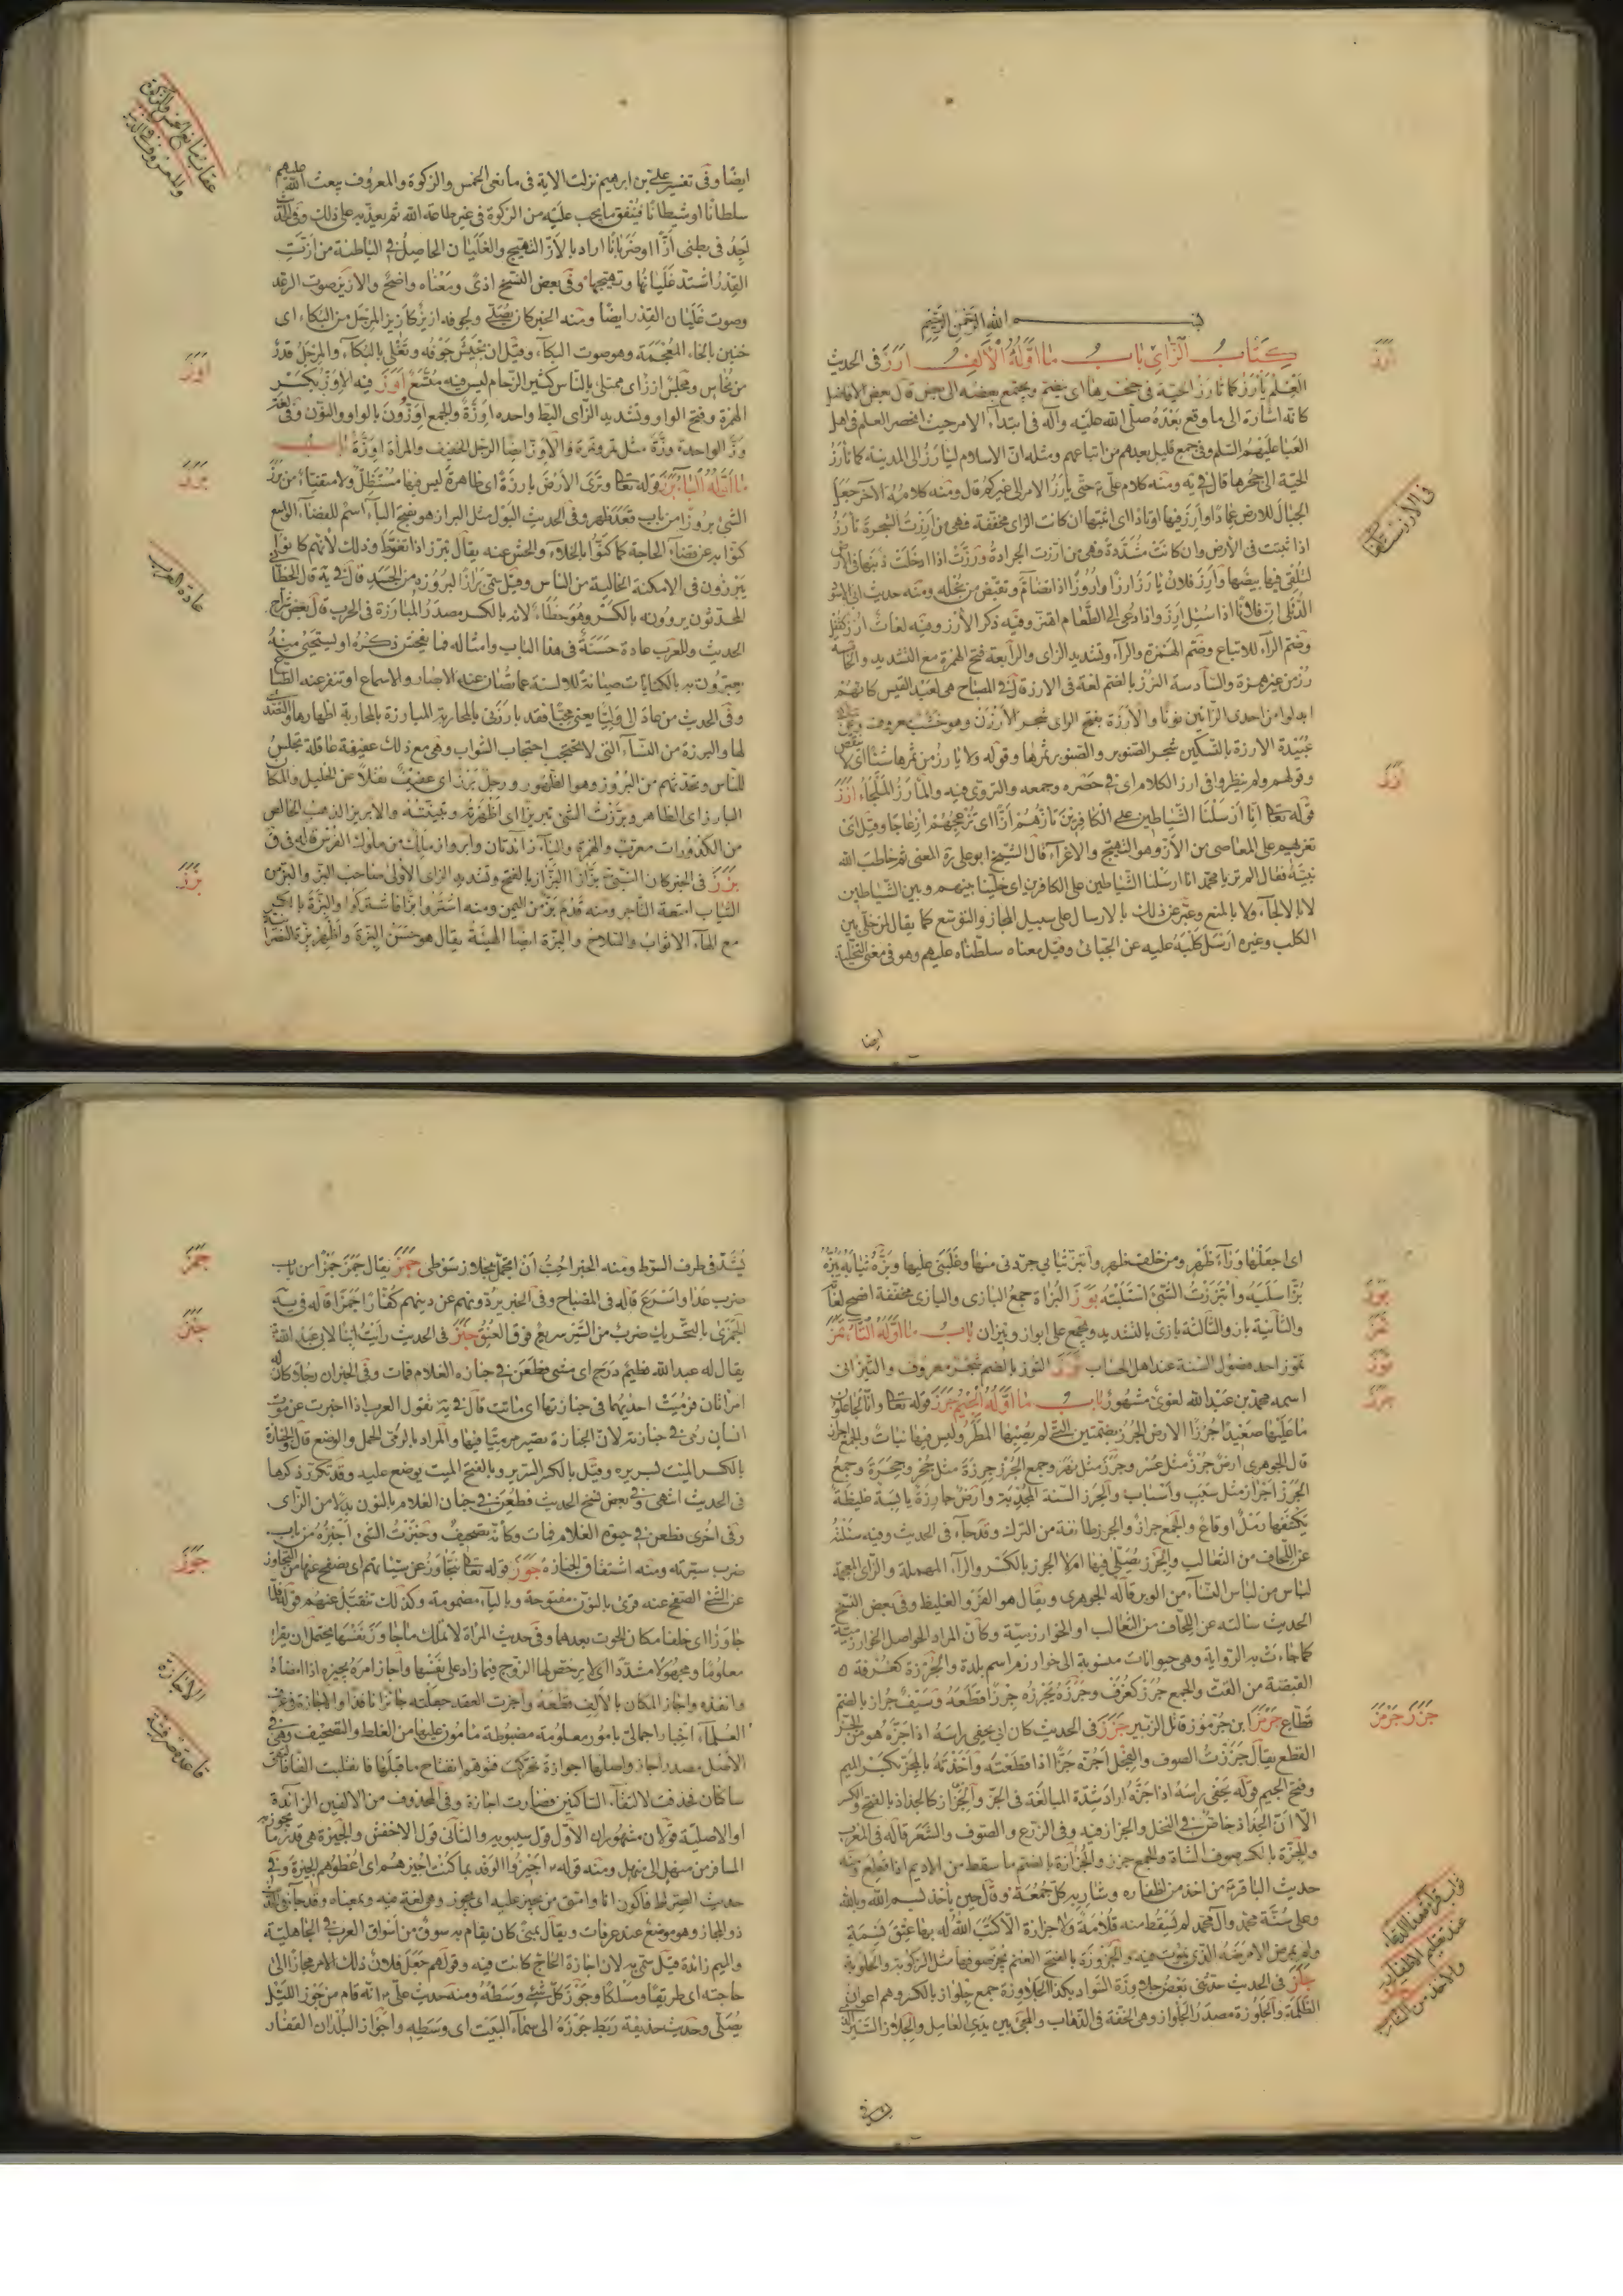 بسم الله الرحمن الرحيم
كتاب الزاي باب ما اوله الألف ارز في الحديث
العلم يأرز كما تأرز الحية في جحرها اي ينضم ويجتمع بعضه الى بعض قال بعض الافاضل
كانه اشارة الى ما وقع بعده صلى الله عليه وآله في ابتداء الامر حيث انحصر العلم في اهل
العبا عليهم السلم وفي جمع قليل بعدهم من اتباعهم ومثله ان الاسلام ليأرز الى المدينة كما تأرز
الحية الى جحرها قال في يه ومنه كلام علي ع حتى يأرز الامر الى غيركم قال ومنه كلامه الآخر جعل
الجبال للارض عمادا وارز فيها اوتادا اي اثبتها ان كانت الزاى مخففة فهي من ارزت الشجرة تأرز
اذا ثبتت في الأرض وان كانت مشددة فهي من ارزت الجرادة ورزت اذا ادخلت ذنبها في الأرض
لتلقي فيها بيضها وأرز فلان يأرز ارزا واروزا اذا تضام وتقبض من بخله ومنه حديث ابي الاسود
الدئلي ان فلانا اذا سئل ارز واذا دعي الى الطعام اهتز وفيه ذكر الأرز وفيه لغات أرز كقفل
وضم الراء للاتباع وضم الهمزة والراء وتشديد الزاى والرابعة فتح الهمزة مع التشديد والخامسة
رز من غير همزة والسادسة الرنز بالضم لغة في الارز قال في المصباح هي لعبد القيس كانهم
ابدلوا من احدى الزائين نونا والأرزة بفتح الراى شجر الأرزن وهو خشب معروف وعن
عبيدة الارزة بالتسكين شجر الصنوبر والصنوبر ثمرها وقوله ولا يأرز من ثمرها شيئا اي لا ينقص
وقولهم ولم ينظر وا في ارز الكلام اى في حصره وجمعه والتروى فيه والمأرز الملجاء ازز
قوله تعالى انا ارسلنا الشياطين على الكافرين تازهم ازا اى تزعجهم ازعاجا وقيل اى
تغريهم على المعاصى من الأز وهو التهييج والاغراء قال الشيخ ابو على ره المعنى ثم خاطب الله
نبيه فقال الم تر يا محمد انا ارسلنا الشياطين على الكافرين اى خلينا بينهم وبين الشياطين
لا بالالجاء ولا بالمنع وعبر عن ذلك بالارسال على سبيل المجاز والتوسع كما يقال لمن خلى بين
الكلب وغيره ارسل كلبه عليه عن الجبائي وقيل معناه سلطناه عليهم وهو في معنى التخلية
ايضا
ارز
ازز
ايضا وفي تفسير علي بن ابراهيم نزلت الاية في مانعى الخمس والزكوة والمعروف يبعث الله عليهم
سلطانا او شيطانا فينفق ما يجب عليه من الزكوة في غير طاعة الله ثم يعذبه على ذلك وفي الحديث
اجد في بطنى أزا او ضربانا اراد بالأز التهييج والغليان الحاصل في الباطنة من ازت
القدر اشتد غليانها وتهيجها وفي بعض النسخ اذى ومعناه واضح والازيز صوت الرعد
وصوت غليان القدر ايضا ومنه الخبر كان يصلى ولجوفه ازيز كازيز المرجل من البكاء اى
خنين بالخاء المعجمة وهو صوت البكاء وقيل ان يجيش جوفه وتغلى بالبكاء والمرجل قدر
من نحاس ومجلس ازز اى ممتلى بالناس كثير الزحام ليس فيه متسع اوز فيه الاوز بكسر
الهمزة وفتح الواو وتشديد الزاى البط واحده اوزة والجمع اوزون بالواو والنون وفي لغة
وز الواحدة وزة مثل تمر وتمرة والاوز ايضا الرجل الخفيف والمرأة اوزة باب
ما اوله الباء برز قوله تعالى وترى الأرض بارزة اى ظاهرة ليس فيها مستظل ولا متفيأ من برز
الشئ بروزا من باب قعد ظهر وفي الحديث البول مثل البراز هو بفتح الباء اسم للفضاء الواسع
كنوا به عن قضاء الحاجة كما كنوا بالخلاء والحش عنه يقال تبرز اذا تغوط وذلك لأنهم كانوا
يتبرزون في الامكنة الخالية من الناس وقيل سمى برازا لبروزه من الجسد قال في يه قال الخطابي
المحدثون يروونه بالكسر وهو خطاء لانه بالكسر مصدر المبارزة في الحرب قال بعض شراح
الحديث وللعرب عادة حسنة في هذا الباب وامثاله فما يفحش ذكره او يستحيى منه
يعبرون به بالكنايات صيانة للالسنة عما تصان عنه الابصار والاسماع او تنفر عنه الطباع
وفي الحديث من عادى لى وليا يعنى محبا فقد بارزنى بالمحاربة المبارزة بالمحاربة اظهارها والتصدى
لها والبرزة من النساء التى لا تحتجب احتجاب الشواب وهى مع ذلك عفيفة عاقلة تجلس
للناس وتحدثهم من البروز وهو الظهور ورجل برز اى عفيف نقلا عن الخليل والمكان
البارز اى الظاهر وبرزت الشئ تبريزا اى أظهرته وبينته والابريز الذهب الخالص
من الكدورات معرب والهمزة والياء زائدتان وابرواز ملك من ملوك الفرس قاله في ق
بزز في الخبر كان النبى بزازا البزاز بالفتح وتشديد الزاى الأولى صاحب البز والبز من
الثياب امتعة التاجر ومنه قدم بز من اليمن ومنه اشتروا بزا فاشتركوا والبزة بالكسر
مع الهاء الاثواب والسلاح والبزة ايضا الهيئة يقال هو حسن البزة وأظهر بزة النصرا
عقاب مانع الخمس والزكوة
والمعروف في الدنيا
اوز
برز
عادة العرب
بزز
اى اجعلها وراء ظهر ومن خلف ظهر وابتز ثيابي جردني منها وغلبنى عليها وبزه ثيابه يبزه
بزا سلبه وابتززت الشئ استلبته بوز البزاة جمع البازى والبازى مخففة افصح لغاته
والثانية باز والثالثة بازى بالتشديد ويجمع على ابواز وبيزان باب ما اوله التاء تمز
تموز احد فصول السنة عند اهل الحساب توز التوز بالضم شجر معروف والتيزانى
اسمه محمد بن عبد الله لغوى مشهور باب ما اوله الجيم جرز قوله تعالى وانا لجاعلون
ما عليها صعيدا جرزا الارض الجرز بضمتين التى لم يصبها المطر وليس فيها نبات والجمع اجراز
قال الجوهرى ارض جرز مثل عسر وجرز مثل نهر وجمع الجرز جرزة مثل جحر وجحرة وجمع
الجرز اجراز مثل سبب واسباب والجرز السنة المجدبة وأرض جارزة يابسة غليظة
يكتنفها رمل او قاع والجمع جوارز والجرز طائفة من الترك وقد جاء في الحديث وفيه سئلته
عن اللحاف من الثعالب والجرز يصلى فيها ام لا الجرز بالكسر والراء المهملة والزاى المعجمة
لباس من لباس النساء من الوبر قاله الجوهرى ويقال هو الفرو الغليظ وفي بعض النسخ
الحديث سالته عن اللحاف من الثعالب او الخوارزمية وكأن المراد الحواصل الخوارزمية
كما جاءت به الرواية وهى حيوانات منسوبة الى خوارزم اسم بلدة والجرزة كغرفة
القبضة من القت والجمع جرز كغرف وجرزه يجرزه جرزا قطعه وسيف جراز بالضم
قطاع جرمز ابن جرموز قاتل الزبير جزز في الحديث كان ابى يحفى راسه اذا جزه هو من الجز
القطع يقال جززت الصوف والنخل اجزه جزا اذا قطعته واخذته بالمجز بكسر الميم
وفتح الجيم قوله يحفى راسه اذا جزه اراد شدة المبالغة في الجز والجزاز كالجذاذ بالفتح والكسر
الا ان الجذاذ خاص في النخل والجزاز فيه وفي الزرع والصوف والشعر قاله في المغرب
والجزة بالكسر صوف الشاة والجمع جزز والجزازة بالضم ما سقط من الاديم اذا قطع ومنه
حديث الباقر ع من اخذ من اظفاره وشاربه كل جمعة وقال حين ياخذ بسم الله وبالله
وعلى سنة محمد وآل محمد لم يسقط منه قلامة ولا جزازة الا كتب الله له بها عتق نسمة
ولم يمرض الا مرضه الذى يموت فيه والجزوزة بالفتح الغنم يجز صوفها مثل الركوبة والحلوبة
جلز في الحديث حدثنى بعض جلاوزة السواد بكذا الجلاوزة جمع جلواز بالكسر وهم اعوان
الظلمة والجلوزة مصدر الجلواز وهى الخفة في الذهاب والمجئ بين يدى العامل والجلاز السير
تمز
توز
جرز
جزز جرمز
يشد في طرف السوط ومنه الخبر احب ان اتجمل بجلاز سوطى جمز يقال جمز جمزا من باب
ضرب عدا واسرع قاله في المصباح وفي الخبر يردونهم عن دينهم كفارا جمزا قاله في يه
الجمزى بالتحريك ضرب من السير سريع فوق العنق جنز في الحديث رأيت ابنا لابى عبد الله ع
يقال له عبد الله فطيم درج اى مشى فطعن في جنازة الغلام فمات وفي الخبر ان رجلا كان له
امرأتان فرميت احديهما في جنازتها اى ماتت قال في يه تقول العرب اذا اخبرت عن موت
انسان رمى في جنازته لان الجنازة تصير مرميا فيها والمراد بالرمى الحمل والوضع قال والجنازة
بالكسر الميت بسريره وقيل بالكسر السرير وبالفتح الميت يوضع عليه وقد تكرر ذكرها
في الحديث انتهى وفي بعض نسخ الحديث فطعن في جنان الغلام بالنون بدلا من الزاى
وفي اخرى فطعن في حيوة الغلام فمات وكأنه تصحيف وجنزت الشئ اجنزه من باب
ضرب سترته ومنه اشتقاق الجنازة جوز قوله تعالى نتجاوز عن سيئاتهم اى نصفح عنها من التجاوز
عن الشئ الصفح عنه قرئ بالنون مفتوحة وبالياء مضمومة وكذلك نتقبل عنهم قوله فلما
جاوزا اى خلفا مكان الحوت بعدهما وفي حديث المرأة لا تملك ما جاوز نفسها يحتمل ان يقرا
معلوما ومجهولا مشددا اى لا يرخص لها الزوج فيما زاد على نفسها واجاز امره يجيزه اذا امضاه
وانفذه واجاز المكان بالالف قطعه واجزت العقد جعلته جائزا نافذا والاجازة في عرف
العلماء اخبار اجمالى بامور معلومة مضبوطة مأمون عليها من الغلط والتصحيف وهى في
الأصل مصدر اجاز واصلها اجوازة تحركت فتوهم انفتاح ما قبلها فانقلبت الفا فالتقى
ساكنان فحذفت لالتقاء الساكنين فصارت اجازة وفي المحذوف من الالفين الزائدة
او الاصلية قولان مشهوران الأول قول سيبويه والثانى قول الاخفش والجيزة هى قدر ما يجوز به
المسافر من منهل الى منهل ومنه قوله ص اجيزوا الوفد بما كنت اجيزهم اى اعطوهم الجيزة وفي
حديث الصراط فاكون انا وامتى من يجيز عليه اى يجوز وهو لغة فيه وبمعناه وقد جاء في الحديث
ذو المجاز وهو موضع عند عرفات ويقال بمنى كان يقام به سوق من اسواق العرب في الجاهلية
والميم زائدة قيل سمى به لان اجازة الحاج كانت فيه وقولهم جعل فلان ذلك الامر مجازا الى
حاجته اى طريقا ومسلكا وجوز كل شئ وسطه ومنه حديث على ع انه قام من جوز الليل
يصلى وحديث حذيفة ربط جوزه الى سماء البيت اى وسطه واجواز البلدان القفار
جمز
جنز
جوز
الاجازة